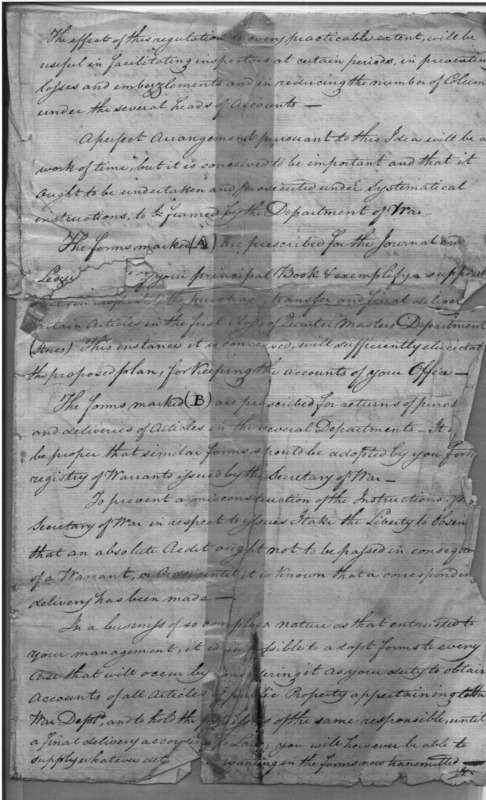 The effect of this regulation to every practicable extent, will be
useful in facilitating inspections at certain periods, in preventin
losses and embezzlements and in reducing the number of Colum
under the several heads of Accounts —
A perfect Arrangement pursuant to this Idea will be a
work of time, but it is conceived to be important and that it
ought to be undertaken and prosecuted under Systematical
instructions, to be framed by the Department of War —
The forms marked (A) are prescribed for the Journal and
Ledge your principal Book & exemplify a suppos
the purchase, transfer and final deliver
certain Articles in the first Class of Quarter Masters Department
(Stores) This instance it is conceived, will sufficiently elucidat
the proposed plan, for Keeping the accounts of your Office —
The forms marked (B) are prescribed for returns of purch
and deliveries of Articles in the several Departments — It
be proper that similar forms should be adopted by you for
registry of Warrants issued by the Secretary of War —
To prevent a misconstruction of the Instructions
Secretary of War in respect to issues I take the Liberty to obser
that an absolute Credit ought not to be passed in conseque
of a Warrant, or Order until it is known that a corresponden
delivery has been made —
In a business of so complex a nature as that entrusted to
your management, it is impossible to adopt forms to every
Case that will occur by considering it as your duty to obtain
Accounts of all Articles of public Property appertaining to the
War Dept. and to hold the of the same responsible, until
a final delivery according to Law, you will however be able to
supply whatever wanting in the forms now transmitted —